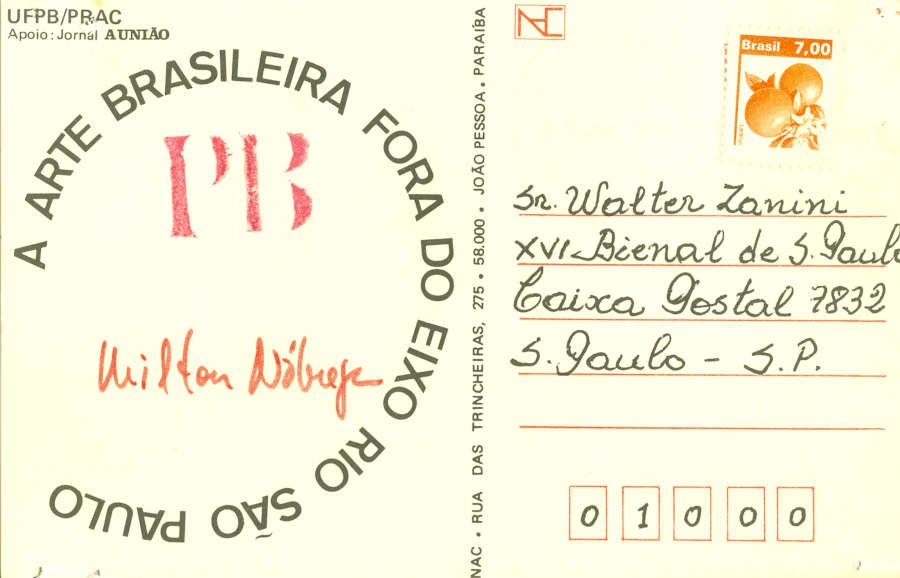 UFPB/PRAC
Apoio: Jornal A UNIÃO
A ARTE BRASILEIRA FORA DO EIXO RIO SÃO PAULO
PB
Milton Nóbrega
NAC • RUA DAS TRINCHEIRAS, 275 • 58.000 • JOÃO PESSOA • PARAÍBA
NAC
Brasil 7,00
Sr. Walter Zanini
XVI Bienal de S. Paulo
Caixa Postal 7832
S. Paulo - S.P.
0 1 0 0 0